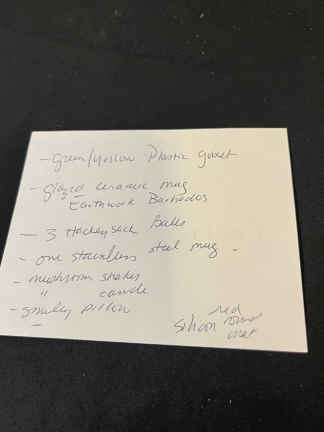 - Green/Yellow Plastic
- glazed ceramic mug
Earthwork Barbados
- 3 Hackeysack Balls
- one stainless steel mug -
- mushroom shakers
" candle
- smiley pillow
-
red
round
silicon mat